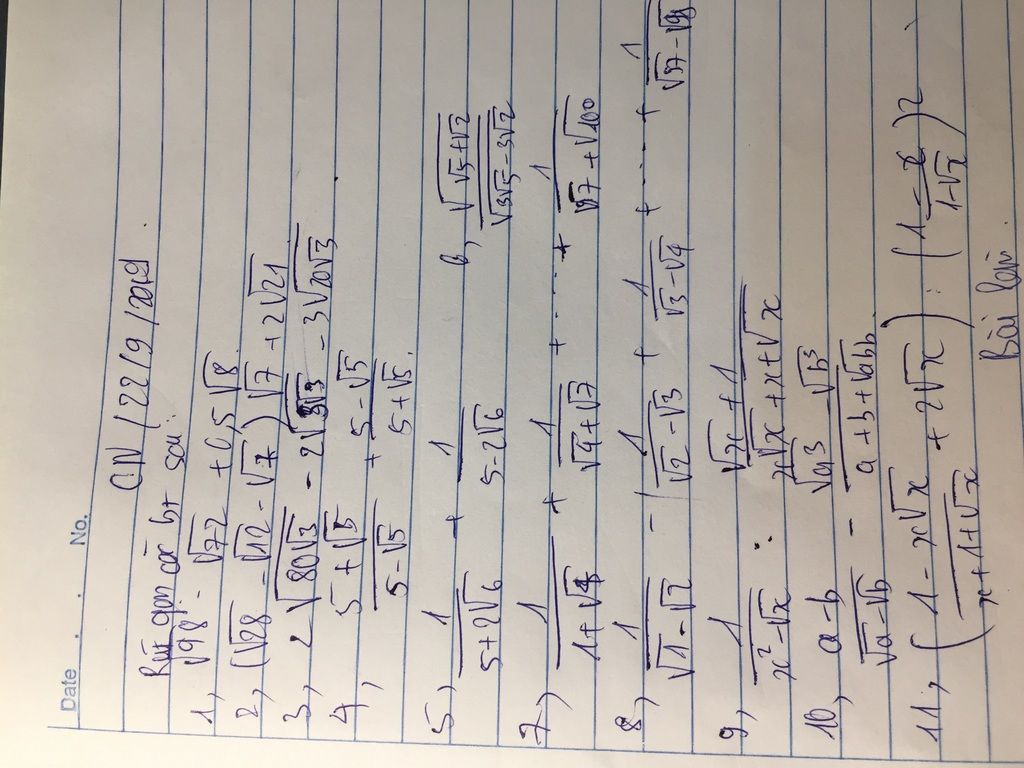 Date . . No.
CN / 22 / 9 / 2019
Rút gọn các bt sau:
1, √98 - √72 + 0,5√8
2, (√28 - √12 - √7)√7 + 2√21
3, 2√(80√3) - 2√(3√3) - 3√(20√3)
4, (5+√5)/(5-√5) + (5-√5)/(5+√5)
5, 1/(5+2√6) + 1/(5-2√6) 6, √(√5+√2)/√(3√5-3√2)
7, 1/(1+√4) + 1/(√4+√7) + .... + 1/(√97+√100)
8, 1/(√1-√2) - 1/(√2-√3) + 1/(√3-√4) + ..... + 1/(√97-√98)
9, 1/(x²-√x) : (√x+1)/(x√x+x+√x)
10, (a-b)/(√a-√b) - (√a³-√b³)/(a+b+√ab)
11, ((1-x√x)/(x+1+√x) + 2√x) : ((1-x)/(1-√x))2
Bài làm